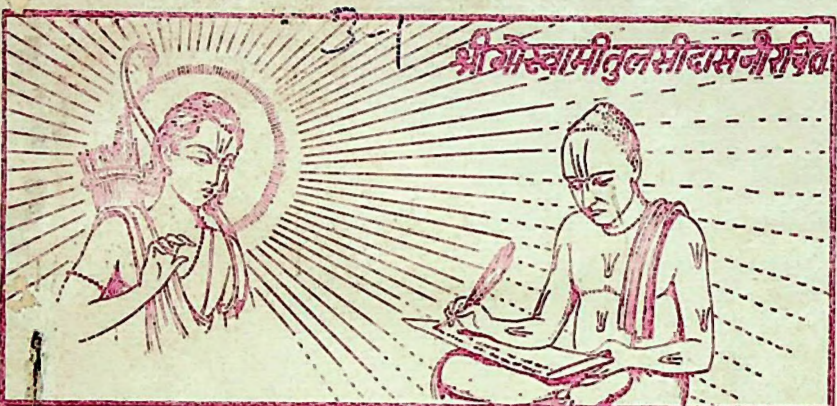 3-1
श्री गोस्वामी तुलसीदास जी रचित